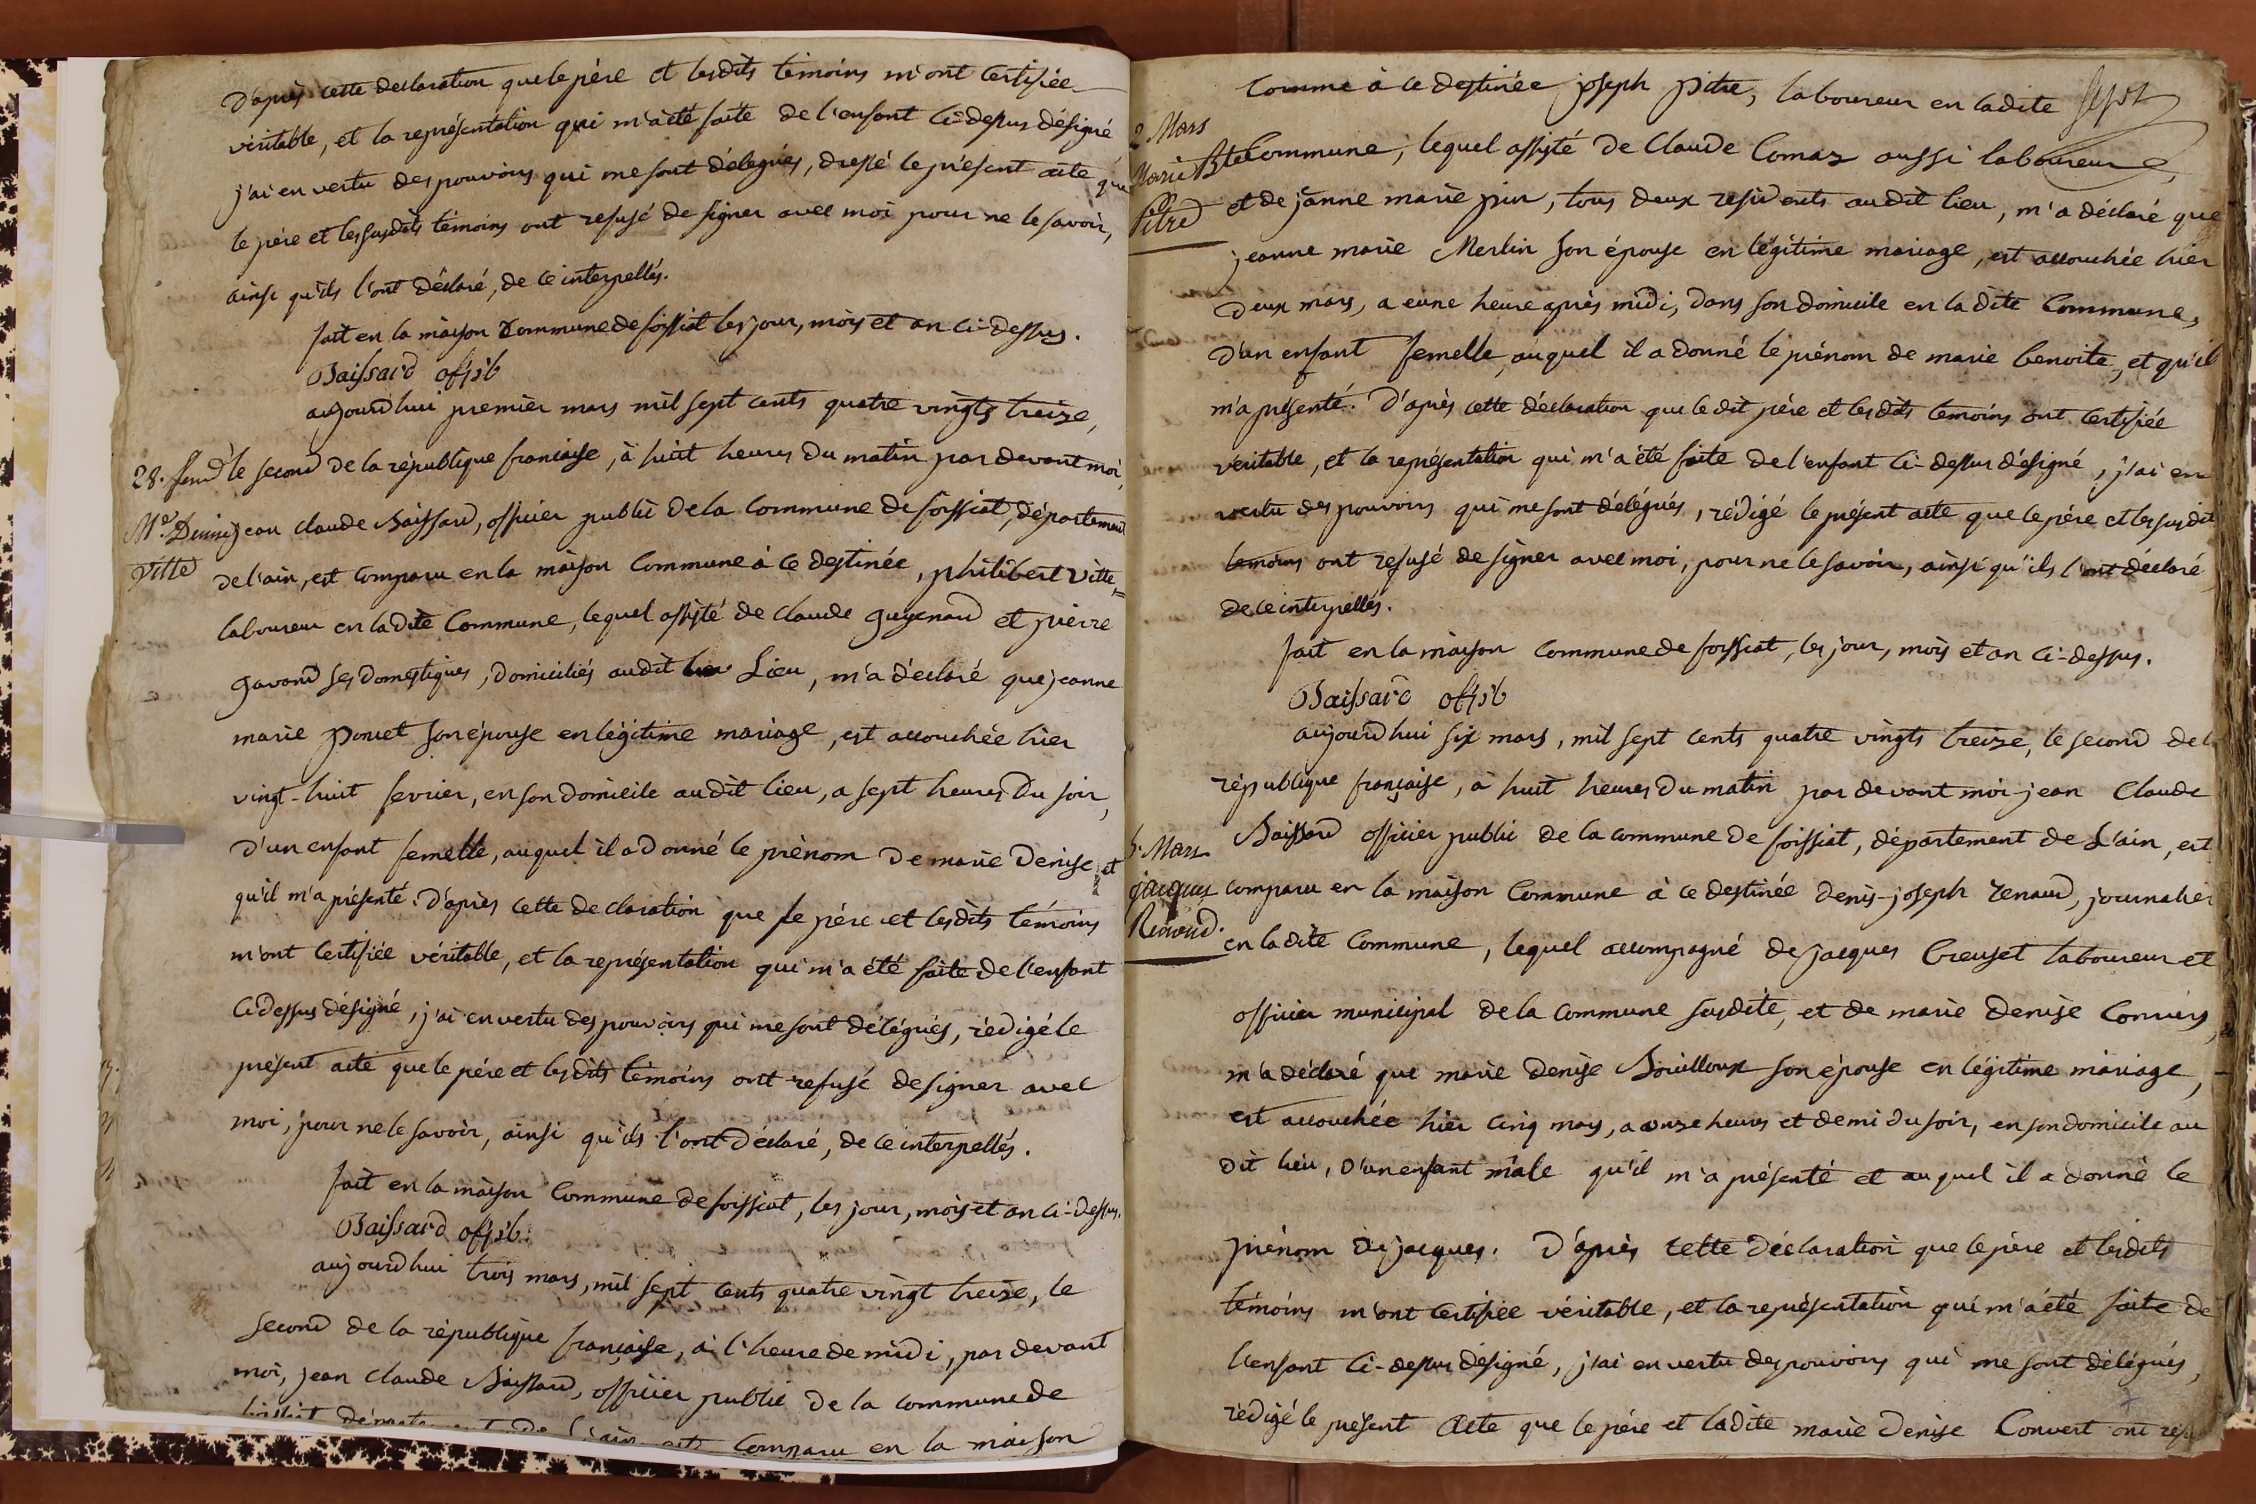 D'après cette declaration que le père et lesdits temoins m'ont certifiée
véritable, et la représentation qui m'a été faite de l'enfant ci-dessus désigné
j'ai en vertu des pouvoirs qui me sont délegués, dressé le présent acte que
le père et les susdits temoins ont refusé de signer avec moi pour ne le savoir,
ainsi qu'ils l'ont déclaré, de ce interpellés.
fait en la maison Commune de foissiat les jour, mois et an ci-dessus.
Baissard off. pb
aujourd'hui premier mars mil sept cents quatre vingts treize,
28. fev.
le second de la république francaise, à huit heures du matin par devant moi,
M.e Denise
jean claude Baissard, officier public de la Commune de foissiat, département
vitte
de l'ain, est comparu en la maison Commune à ce destinée, philibert vitte
laboureur en la dite Commune, lequel assisté de claude guyenard et pierre
gavand ses domestiques, domiciliés audit lieu Lieu, m'a déclaré que jeanne
marie poncet son épouse en légitime mariage, est accouchée hier
vingt-huit fevrier, en son domicile audit lieu, a sept heures du soir,
d'un enfant femelle, auquel il a donné le prénom de marie denise, et
qu'il m'a présenté. D'après cette declaration que le père et lesdits témoins
m'ont certifiée véritable, et la représentation qui m'a été faite de l'enfant
ci dessus désigné, j'ai en vertu des pouvoirs qui me sont délégués, rédigé le
présent acte que le père et lesdits témoins ont refusé de signer avec
moi, pour ne le savoir, ainsi qu'ils l'ont déclaré, de ce interpellés.
fait en la maison Commune de foissiat, les jour, mois et an ci-dessus.
Baissard off. pb.
aujourd'hui trois mars, mil sept cents quatre vingt treize, le
second de la république française, à l'heure de midi, par devant
moi, jean claude Baissard, officier public de la commune de
foissiat département de l'ain est comparu en la maison
Comme à ce destinée joseph pitre, laboureur en la dite
sept
2. Mars
Marie Bte
Commune, lequel assisté de Claude Comas aussi laboureur,
Pitre
et de janne marie pin, tous deux residents audit lieu, m'a déclaré que
jeanne marie Merlin son épouse en légitime mariage, est accouchée hier
deux mars, a eune heure après midi, dans son domicile en la dite Commune,
d'un enfant femelle, auquel il a donné le prénom de marie benoite, et qu'il
m'a présenté. D'après cette déclaration que le dit père et lesdits temoins ont certifiée
véritable, et la représentation qui m'a été faite de l'enfant ci-dessus désigné, j'ai en
vertu des pouvoirs qui me sont délégués, rédigé le présent acte que le père et les susdits
temoins ont refusé de signer avec moi, pour ne le savoir, ainsi qu'ils l'ont déclaré,
de ce interpellés.
fait en la maison commune de foissiat, les jour, mois et an ci-dessus.
Baissard off. pb
aujourd'hui six mars, mil sept cents quatre vingts treize, le second de la
république française, à huit heures du matin par devant moi jean Claude
5. Mars
Baissard officier public de la commune de foissiat, département de L'ain, est
jacques
comparu en la maison Commune à ce destinée denis-joseph renaud, journalier
Renaud.
en la dite Commune, lequel accompagné de jacques Creuset laboureur et
officier municipal de la commune susdite, et de marie denise Convers,
m'a déclaré que marie denise Bouilloux son épouse en légitime mariage,
est accouchée hier cinq mars, a onze heures et demi du soir, en son domicile au
dit lieu, d'un enfant mâle qu'il m'a présenté et auquel il a donné le
prénom de jacques. D'après cette déclaration que le père et lesdits
témoins m'ont certifiée véritable, et la représentation qui m'a été faite de
l'enfant ci-dessus désigné, j'ai en vertu des pouvoirs qui me sont délégués,
rédigé le présent acte que le père et ladite marie denise Convert ont